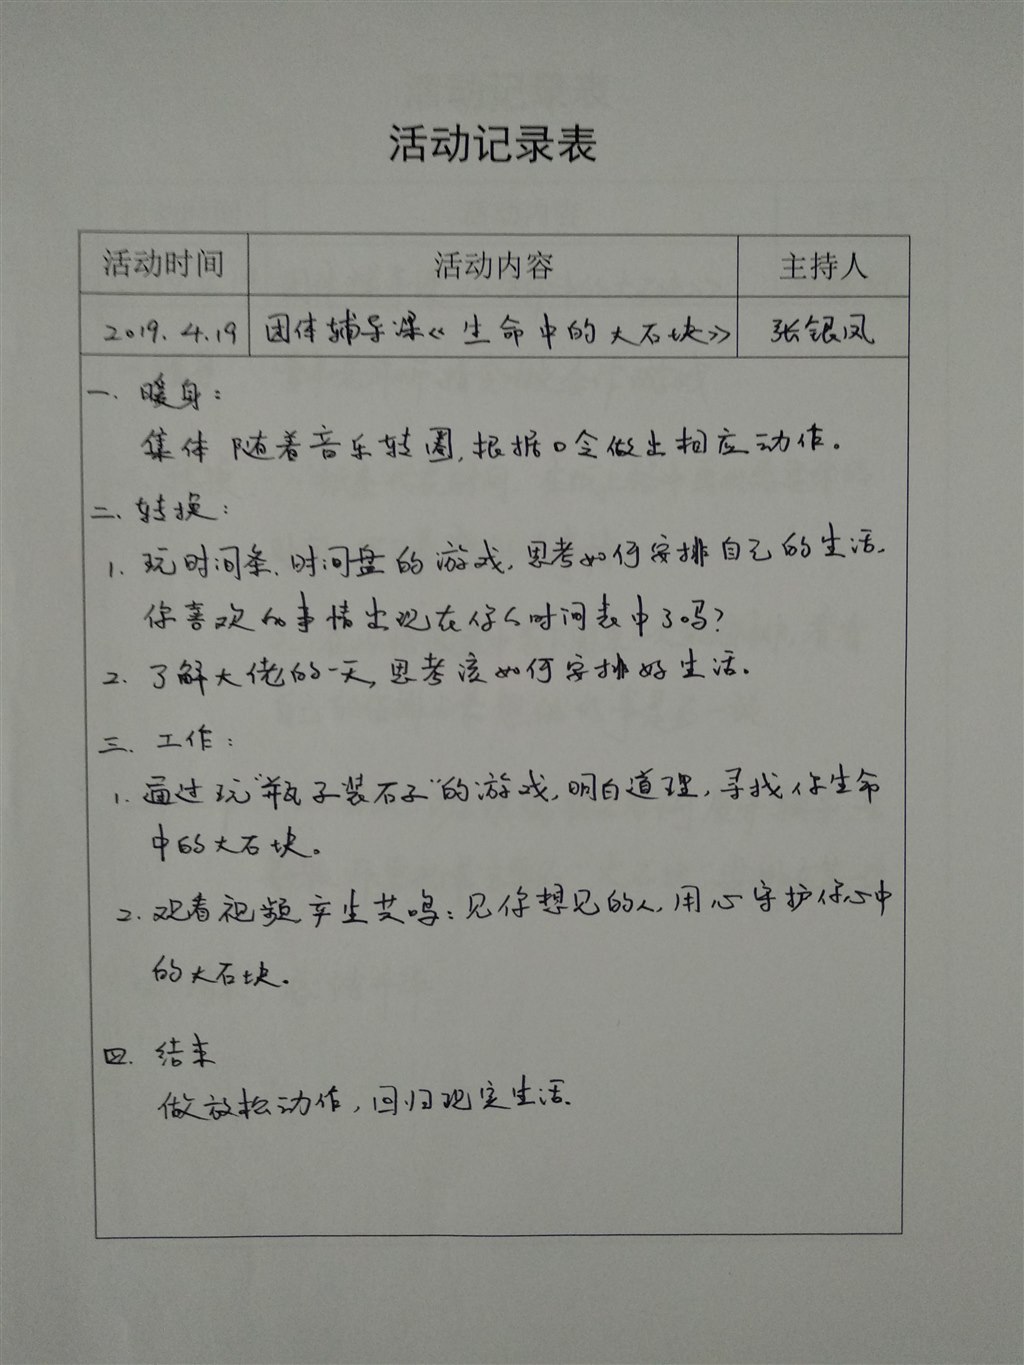 活动记录表
活动时间 活动内容 主持人
2019.4.19 团体辅导课《生命中的大石块》 张银凤
一、暖身：
集体随着音乐转圈,根据口令做出相应动作。
二、转换：
1. 玩时间条、时间盘的游戏,思考如何安排自己的生活.
你喜欢的事情出现在你的时间表中了吗?
2. 了解大佬的一天,思考该如何安排好生活。
三、工作：
1. 通过玩"瓶子装石子"的游戏,明白道理,寻找你生命
中的大石块。
2. 观看视频产生共鸣：见你想见的人,用心守护你心中
的大石块。
四. 结束
做放松动作,回归现实生活.